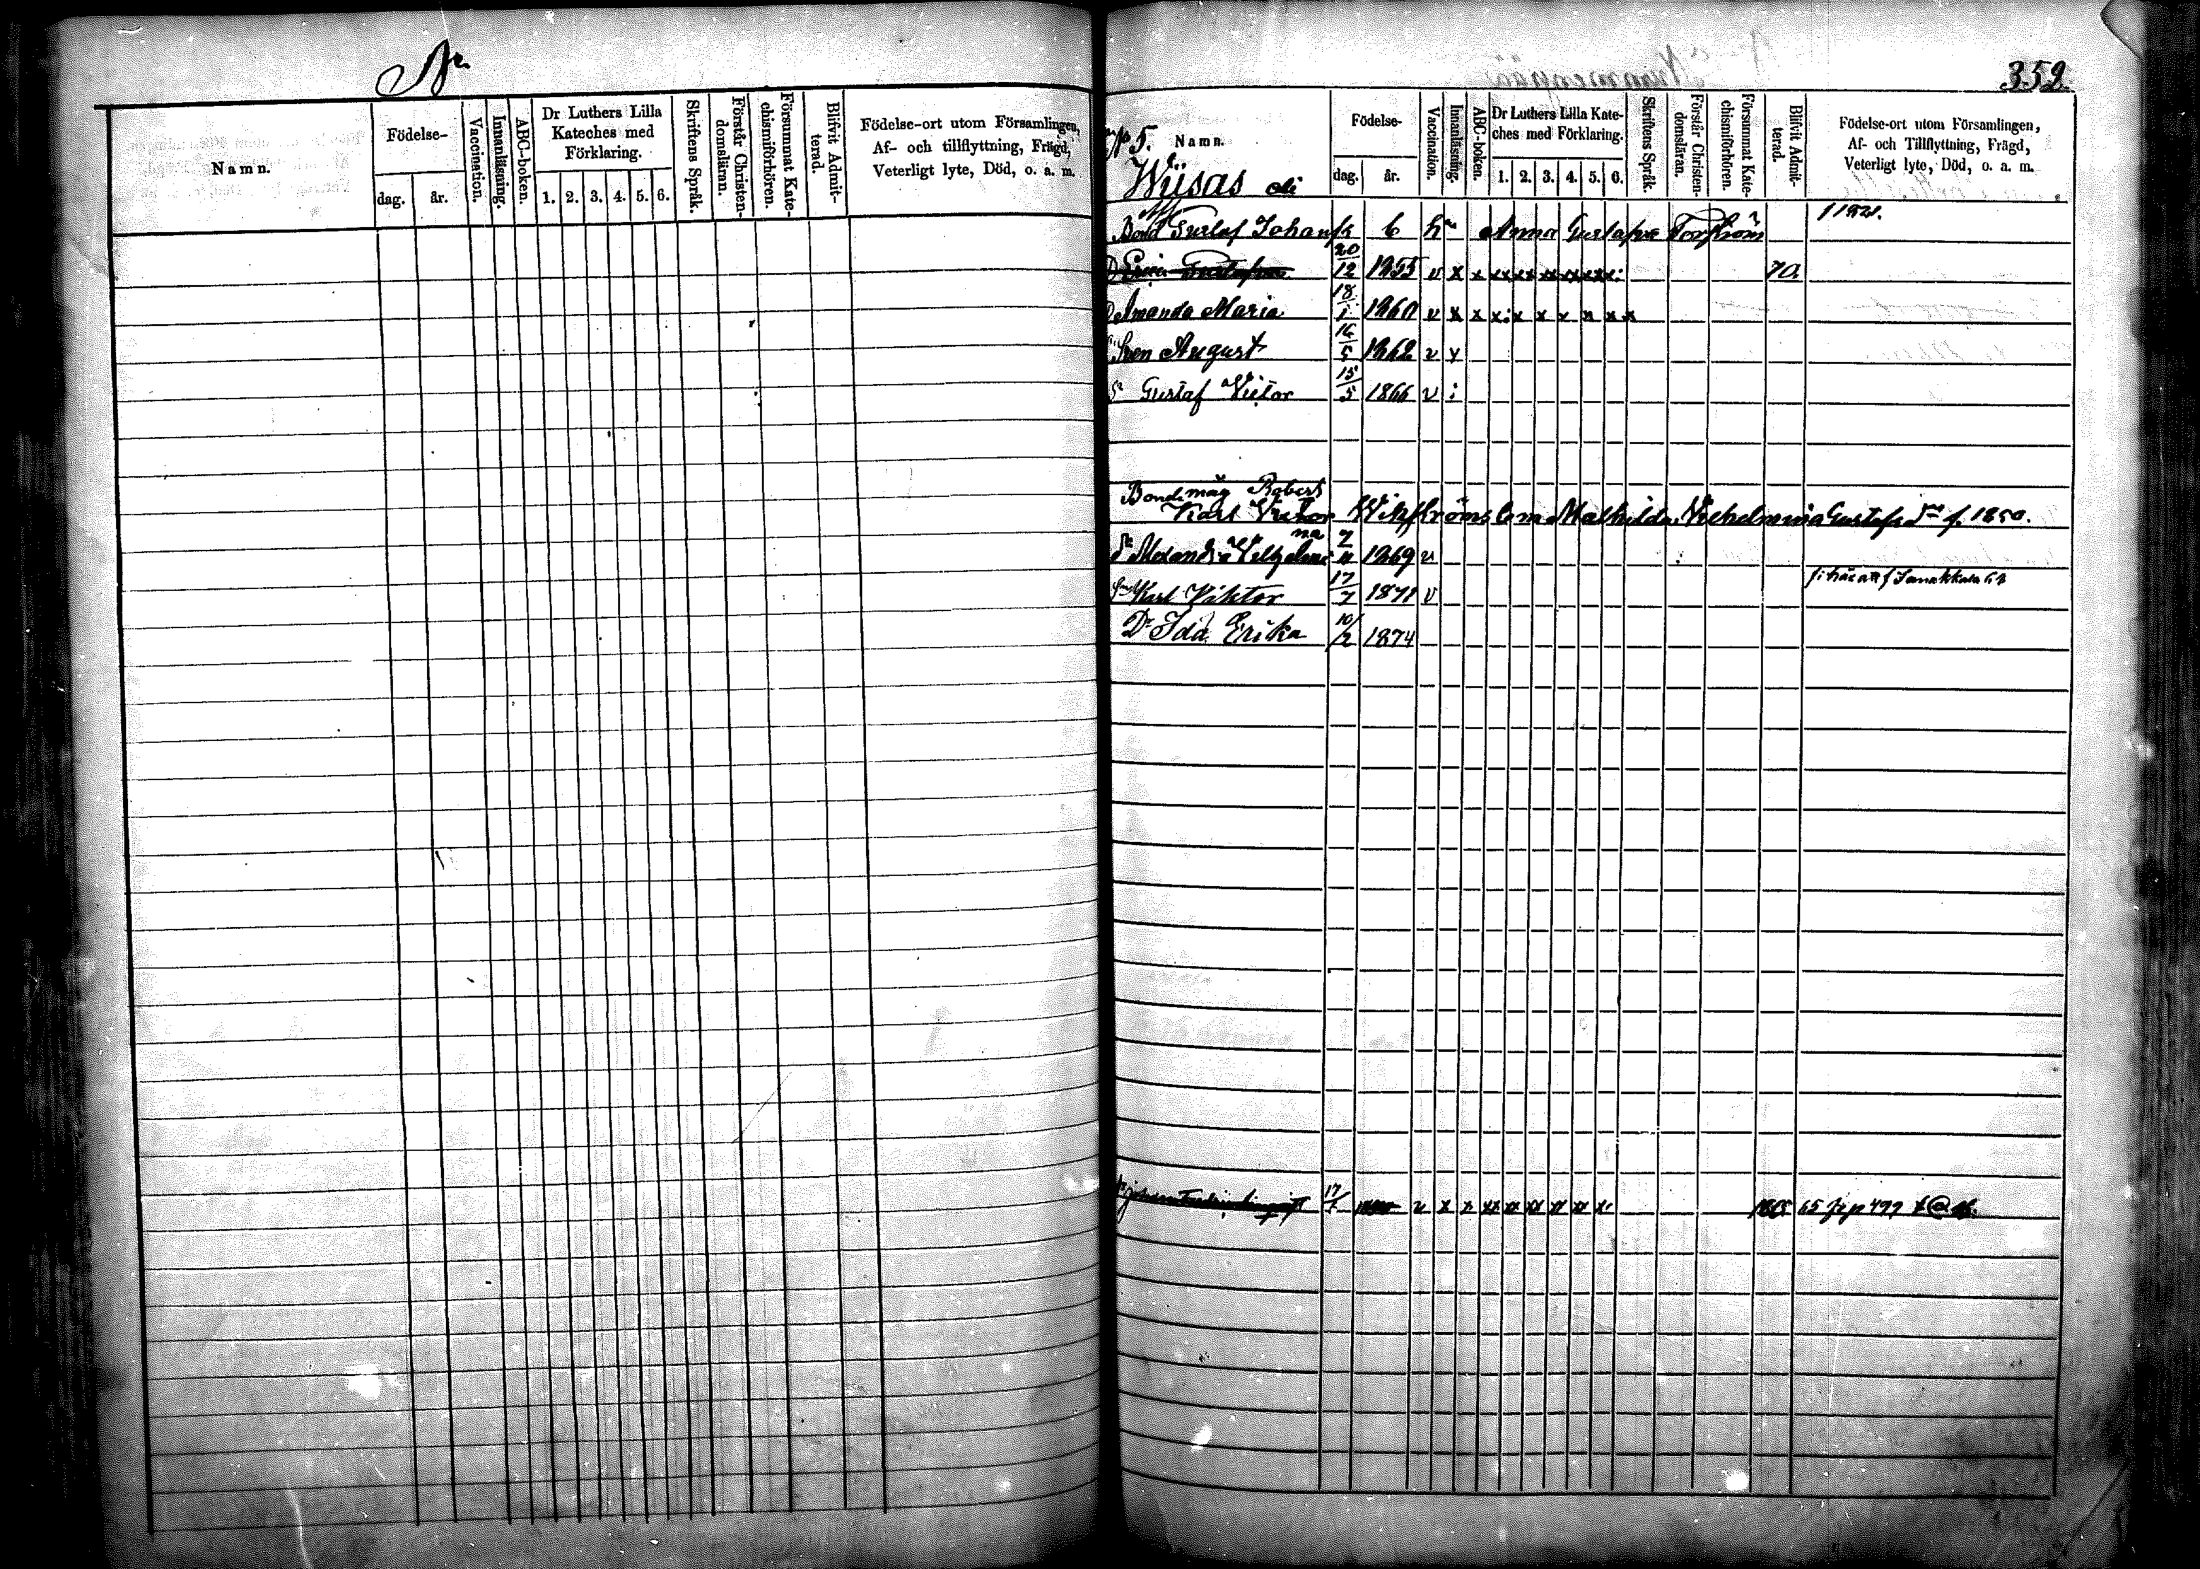 No
Namn.
Födelse-
dag. år.
Vaccination.
Innanläsning.
ABC-boken.
Dr Luthers Lilla
Kateches med
Förklaring.
1. 2. 3. 4. 5. 6.
Skriftens Språk.
Förstår Christen-
domsläran.
Försummat Kate-
chismiförhören.
Blifvit Admit-
terad.
Födelse-ort utom Församlingen,
Af- och tillflyttning, Frägd,
Veterligt lyte, Död, o. a. m.
352.
No 5. Namn.
Wiisas
Födelse-
dag. år.
Vaccination.
Innanläsning.
ABC-boken.
Dr Luthers Lilla Kate-
ches med Förklaring.
1. 2. 3. 4. 5. 6.
Skriftens Språk.
Förstår Christen-
domsläran.
Försummat Kate-
chismiförhören.
Blifvit Admit-
terad.
Födelse-ort utom Församlingen,
Af- och Tillflyttning, Frägd,
Veterligt lyte, Död, o. a. m.
Gustaf Anna Gustafva
20/12 1855 v x x xx xx xx xx xx x: 70.
Amanda Maria 18/1 1860 v x x x: x x x x x x
Sven August 16/5 1862 v x
Sn Gustaf Victor 15/5 1866 v :
Bonde måg Robert
Karl Victor Wikströms Mathilda Vilhelmina Gustafs f. 1850.
1869 v
Sn Karl Viktor 17/7 1871 v
Dr Ida Erika 10/2 1874
17/1 v x x xx xx xx xx xx x: 65 p 477